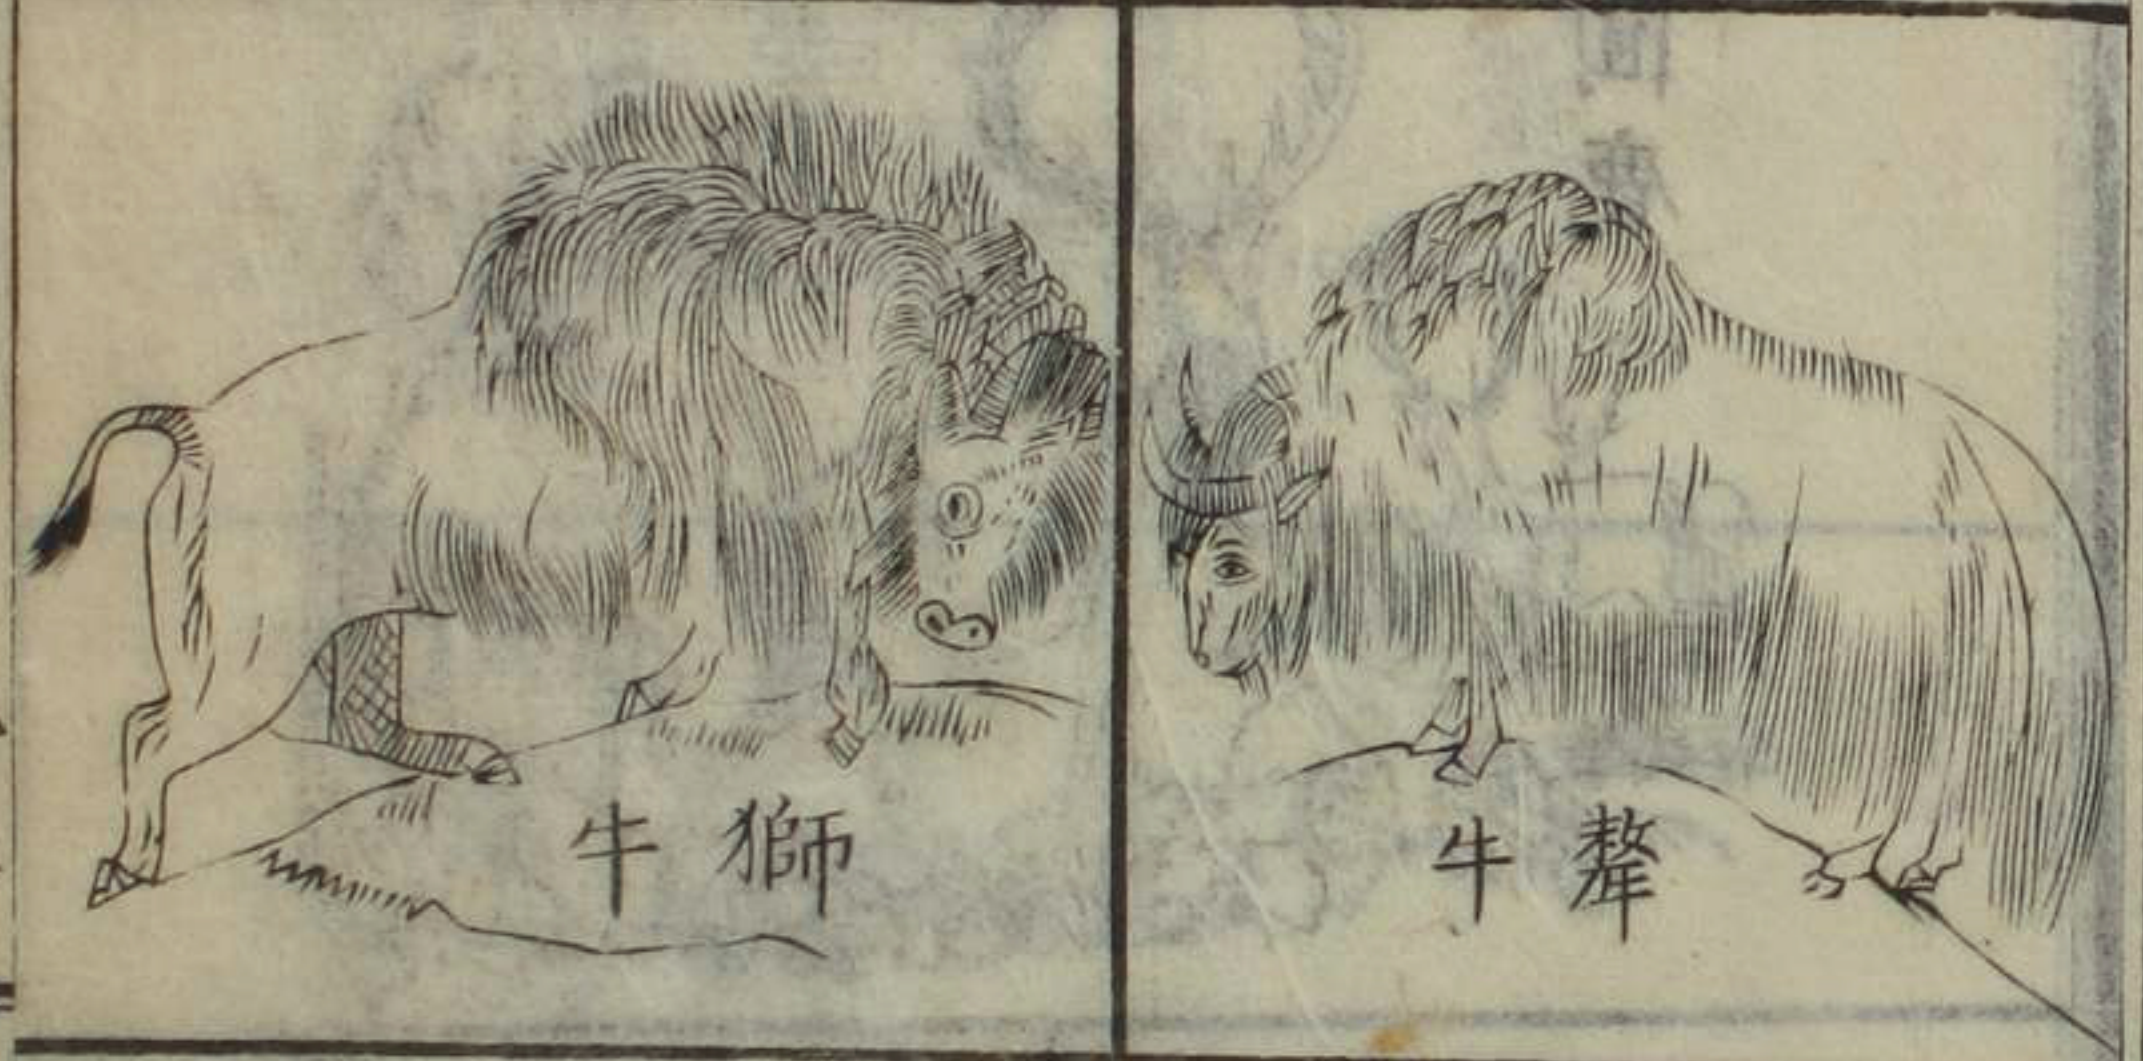 犛牛
獅牛